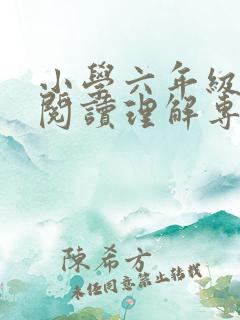 小學六年級
閱讀理解專
陳希方
未經同意禁止轉載